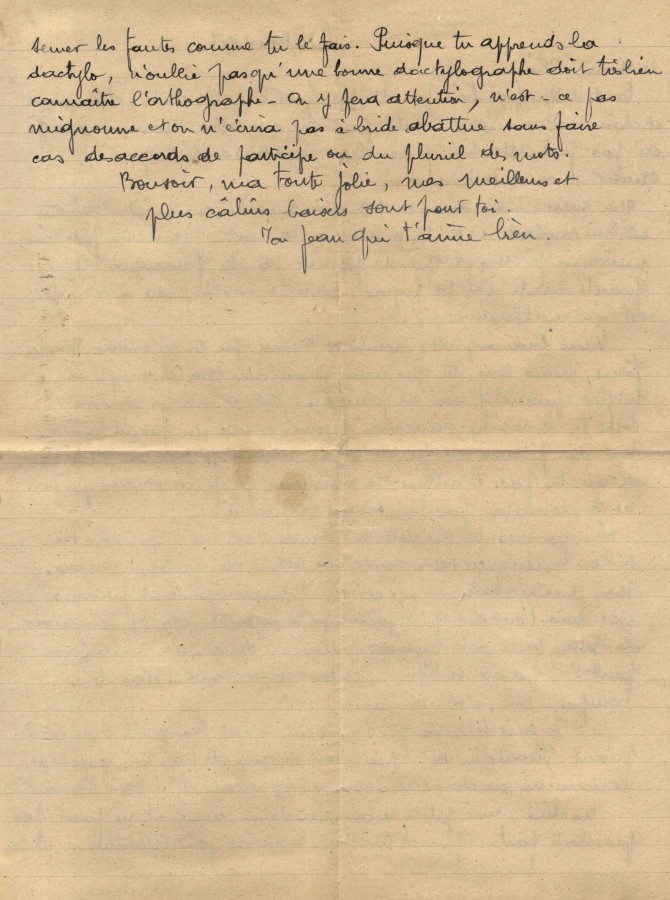 semer les fautes comme tu le fais. Puisque tu apprends la
dactylo, n'oublie pas qu'une bonne dactylographe doit très bien
connaître l'orthographe - On y fera attention, n'est-ce pas
mignonne et on n'écrira pas à bride abattue sans faire
cas des accords de participe ou du pluriel des mots.
Bonsoir, ma toute jolie, mes meilleurs et
plus câlins baisers sont pour toi.
Ton Jean qui t'aime bien.